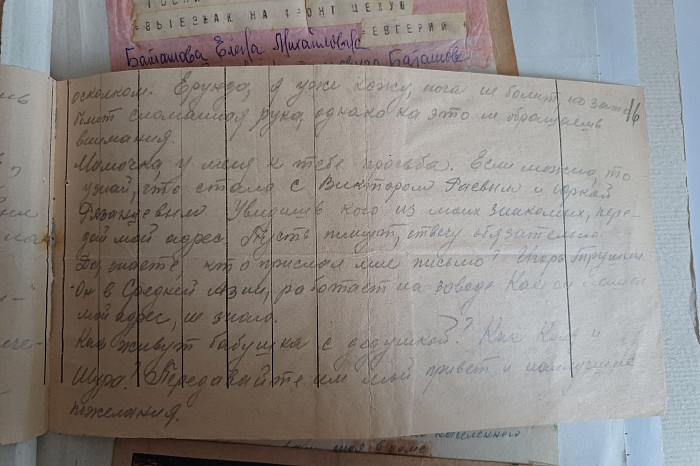 ВЫЕЗЖАЮ НА ФРОНТ ЦЕЛУЮ
ЕВГЕНИЙ
Баташова Елена Михайловна
осколком. Ерунда, я уже хожу, нога не болит но зато
16
болит сломанная рука, однако на это не обращаешь
внимания.
Мамочка, у меня к тебе просьба. Если можно, то
узнай, что стало с Виктором Раевым и Юркой
Рязанцевым Увидишь кого из моих знакомых, пере-
дай мой адрес. Пусть пишут, отвечу обязательно
Да, знаете, кто прислал мне письмо! Игорь Трушин
Он в Средней Азии, работает на заводе Как он
мой адрес, не знаю.
Как живут бабушка с дедушкой? Как и
Шура? Передавайте им мой привет и наилучшие
пожелания.